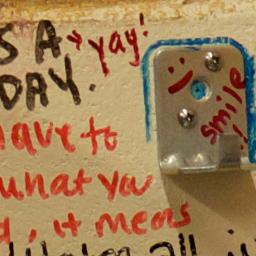 S A → yay!
DAY.
smile!!
have to
what you
, it means
all